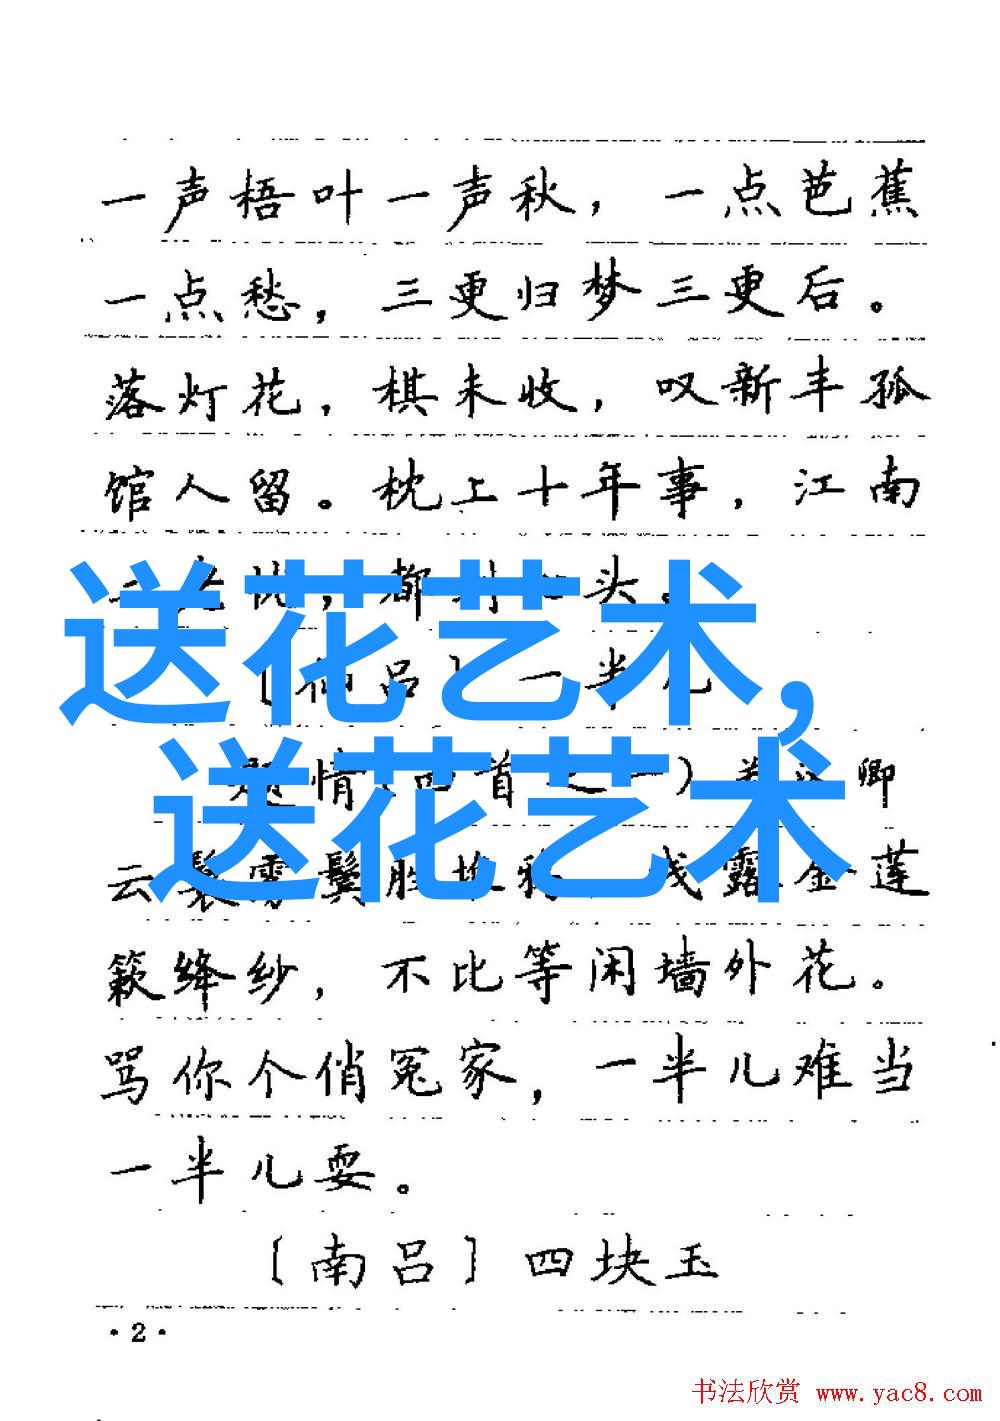 一声梧叶一声秋，一点芭蕉
一点愁，三更归梦三更后。
落灯花，棋未收，叹新丰孤
馆人留。枕上十年事，江南
忧，都 头。
送花艺术，
吕〕一半儿
送花艺术
情 首 卿
云鬟雾鬓胜堆鸦，浅露金莲
簌绛纱，不比等闲墙外花。
骂你个俏冤家，一半儿难当
一半儿耍。
〔南吕〕四块玉
·2·
书法欣赏 www.yac8.com